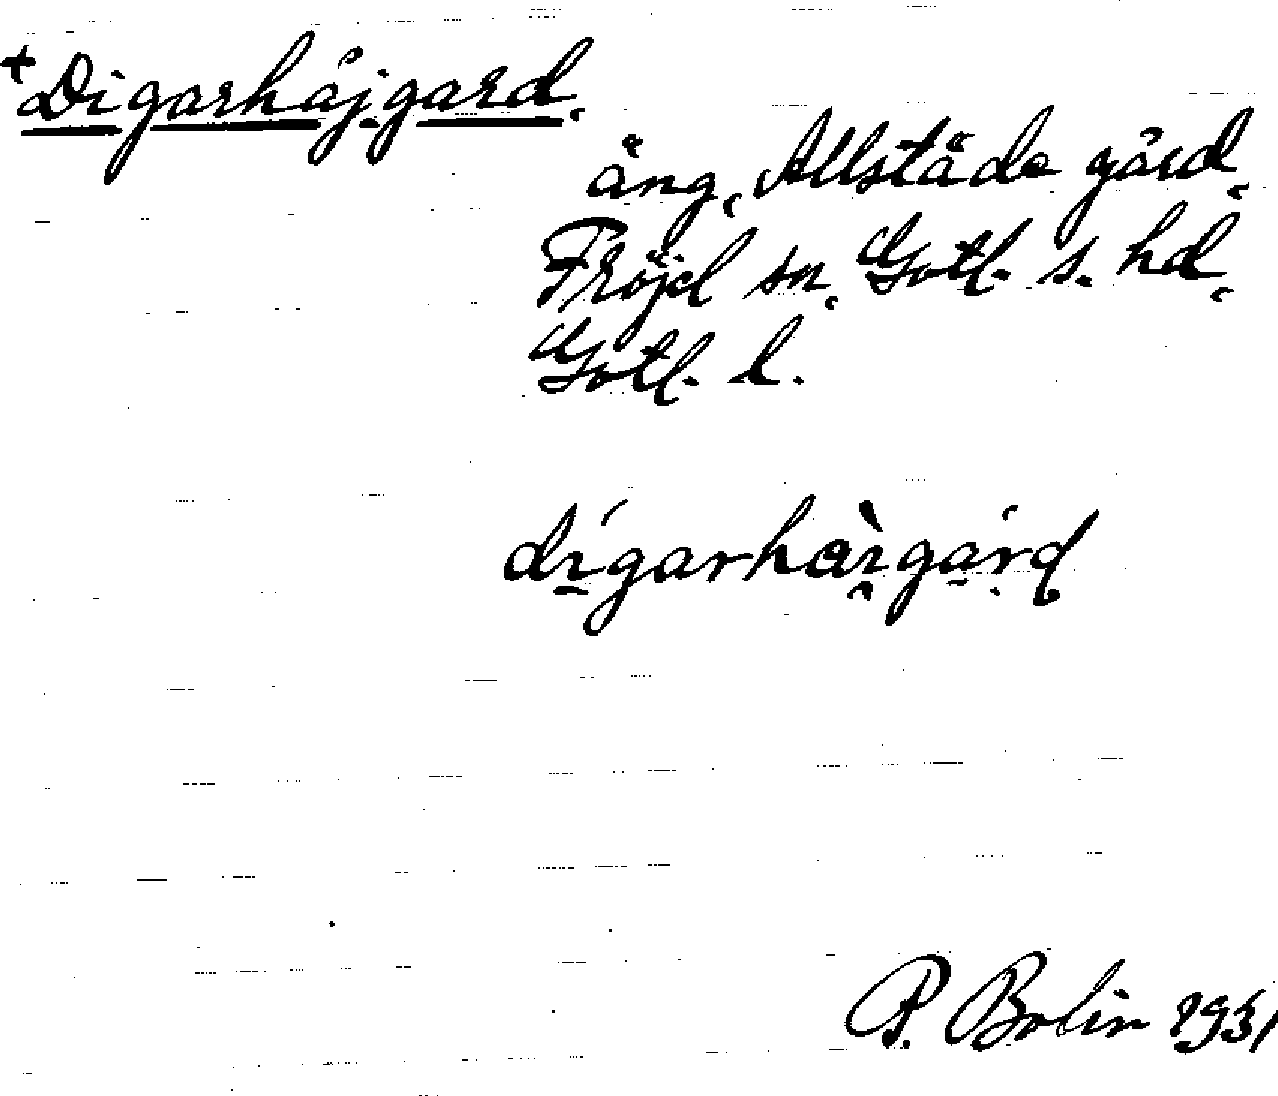 +Digarhåjgard,
äng, Allstäde gård,
Fröjel sn, Gotl. s. hd,
Gotl. l.
P. Bolin 1931